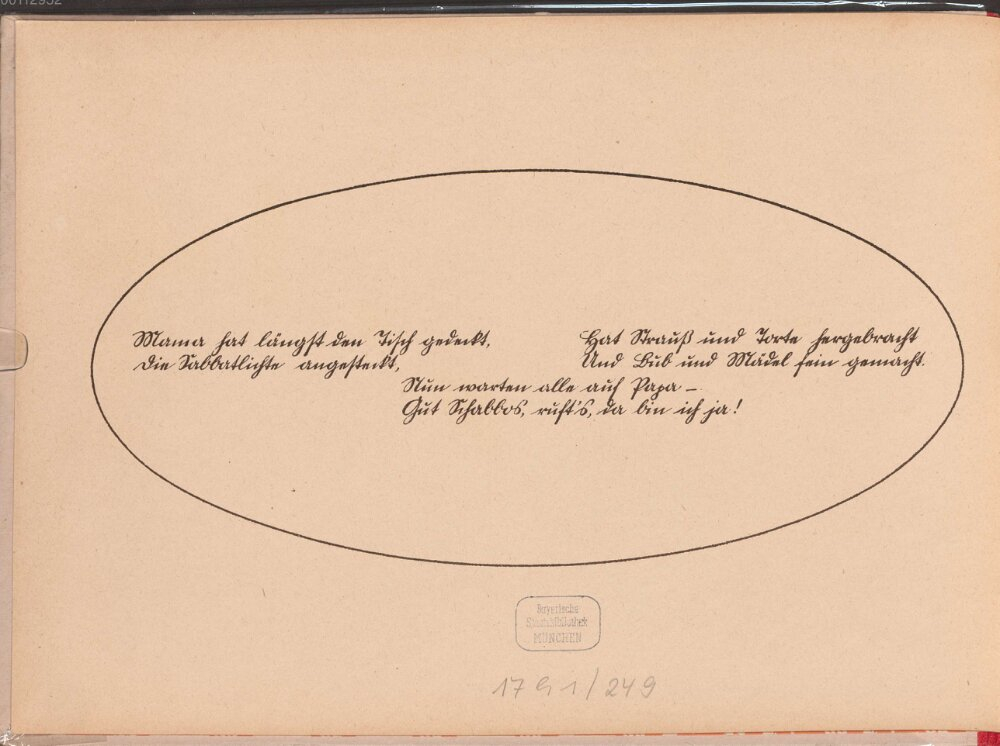 00112952
Mama hat längst den Tisch gedeckt,
Die Sabbatlichte angesteckt,
Hat Strauß und Torte hergebracht
Und Bub und Mädel fein gemacht.
Nun warten alle auf Papa –
Gut Schabbos, ruft's, da bin ich ja!
Bayerische
Staatsbibliothek
MÜNCHEN
/249